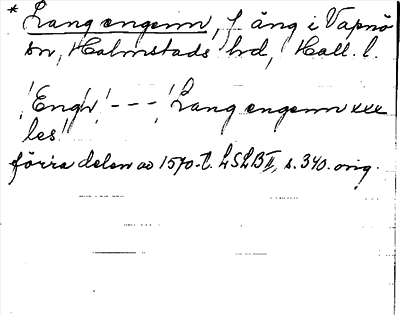 * Lang engenn, f äng i Vapnö
sn, Halmstads hd, Hall. l.
'Engh' - - - 'Lang engenn xxx
les'
förra delen av 1570-t. LSLB II, s. 340. orig.